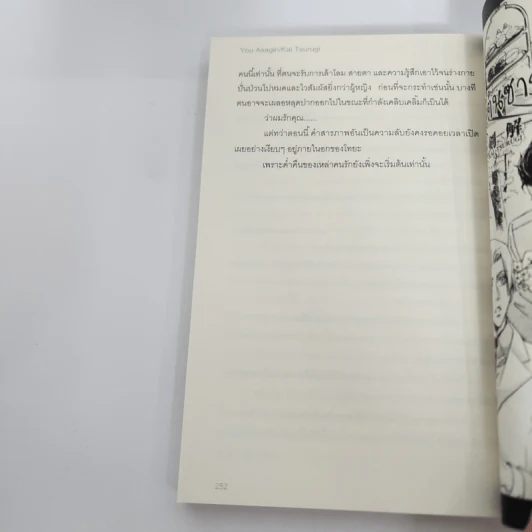 You Asagiri/Kai Tsurugi
คนนี้เท่านั้น ที่ตนจะรับการเล้าโลม สายตา และความรู้สึกเอาไว้จนร่างกาย
ปั่นป่วนไปหมดและไวสัมผัสยิ่งกว่าผู้หญิง ก่อนที่จะกระทำเช่นนั้น บางที
ตนอาจจะเผลอหลุดปากออกไปในขณะที่กำลังเคลิบเคลิ้มก็เป็นได้
ว่าผมรักคุณ......
แต่ทว่าตอนนี้ คำสารภาพอันเป็นความลับยังคงรอคอยเวลาเปิด
เผยอย่างเงียบๆ อยู่ภายในอกของโทยะ
เพราะค่ำคืนของเหล่าคนรักยังเพิ่งจะเริ่มต้นเท่านั้น
252